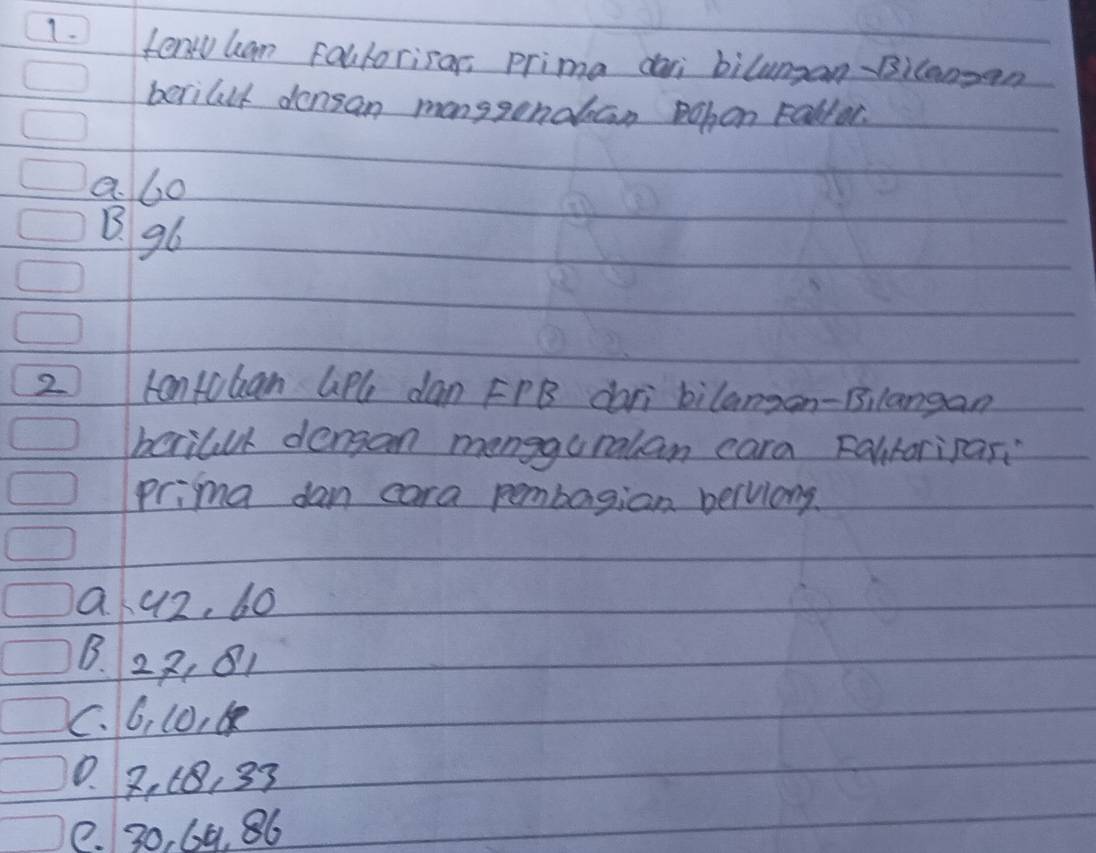 1. tentukan Faktorisasi prima dari bilangan-Bilangan
berikut dengan menggunakan Pohon Faktor.
a. 60
B. 96
2 tentukan KPK dan FPB dari bilangan-Bilangan
berikut dengan menggunakan cara Faktorisasi
prima dan cara pembagian berulang.
a. 42, 60
B. 27, 81
C. 6, 10,
D. 7, 18, 33
e. 30, 64, 86